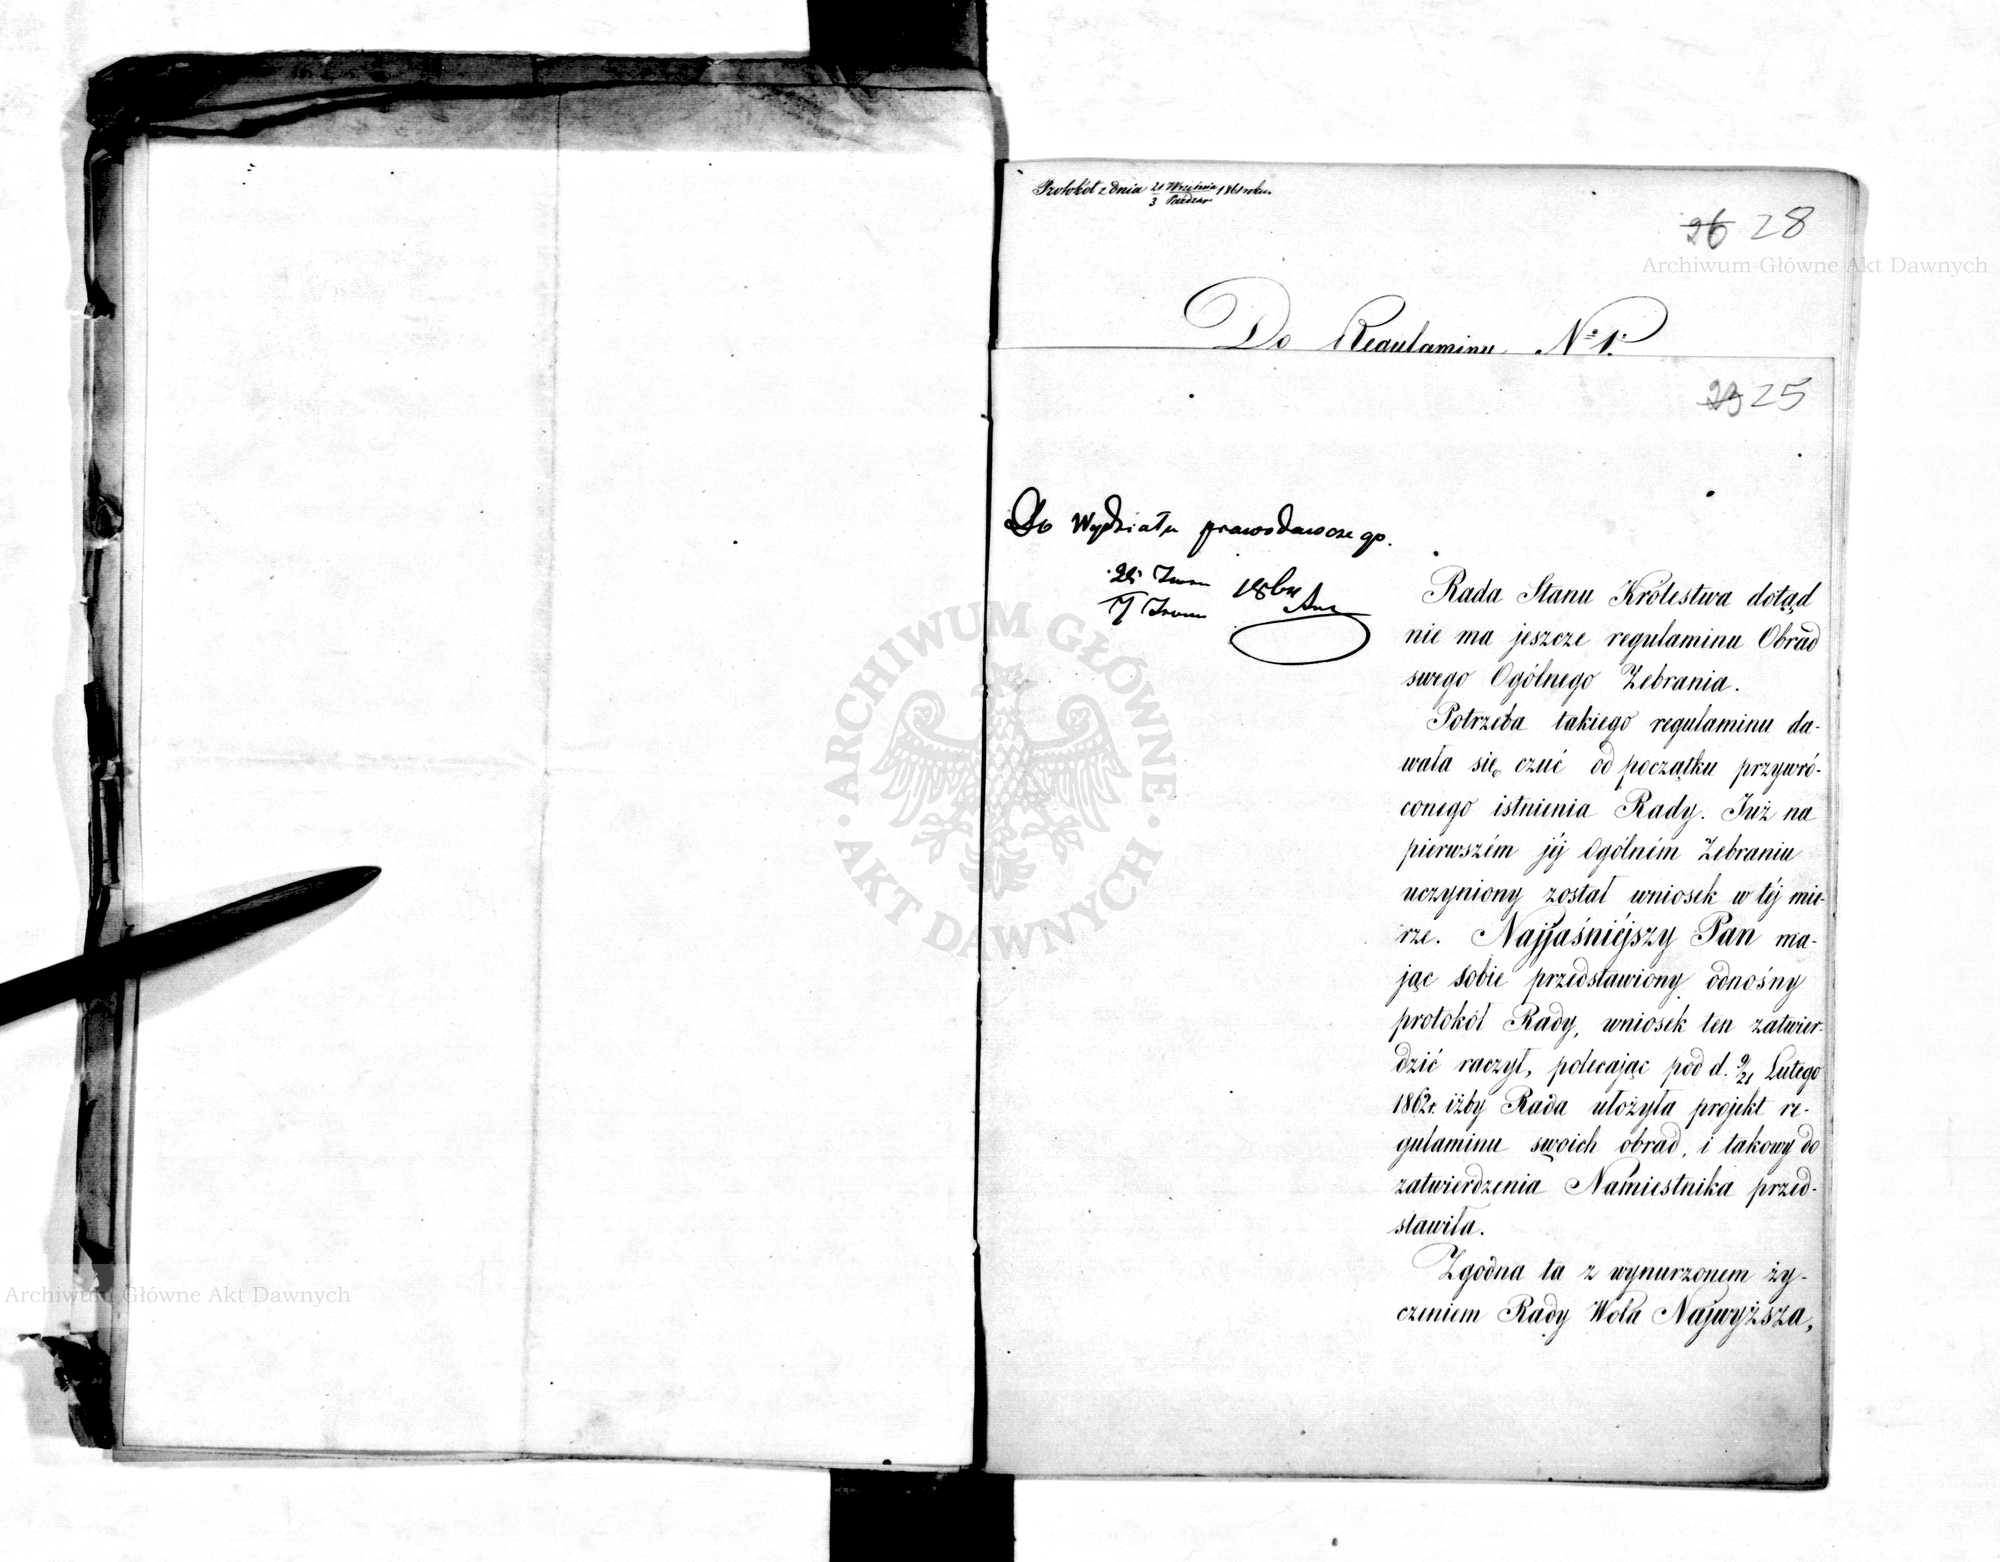 Protokół z dnia 21 Września 1861 roku
3 Paździer
26 28
Archiwum Główne Akt Dawnych
Do Regulaminu Nº 1.
23 25
Do Wydziału prawodawczego.
186
Rada Stanu Królestwa dotąd
nie ma jeszcze regulaminu Obrad
swego Ogólnego Zebrania.
Potrzeba takiego regulaminu da-
wała się czuć od początku przywró-
conego istnienia Rady. Już na
pierwszém jéj Ogólném Zebraniu
uczyniony został wniosek w téj mie-
rze. Najjaśniéjszy Pan ma-
jąc sobie przedstawiony odnośny
protokół Rady, wniosek ten zatwier-
dzić raczył, polecając pod d. 9/21 Lutego
1862 r. iżby Rada ułożyła projekt re-
gulaminu swoich obrad, i takowy do
zatwierdzenia Namiestnika przed-
stawiła.
Zgodna ta z wynurzonem ży-
czeniem Rady Wola Najwyższa,
ARCHIWUM GŁÓWNE
AKT DAWNYCH
Archiwum Główne Akt Dawnych